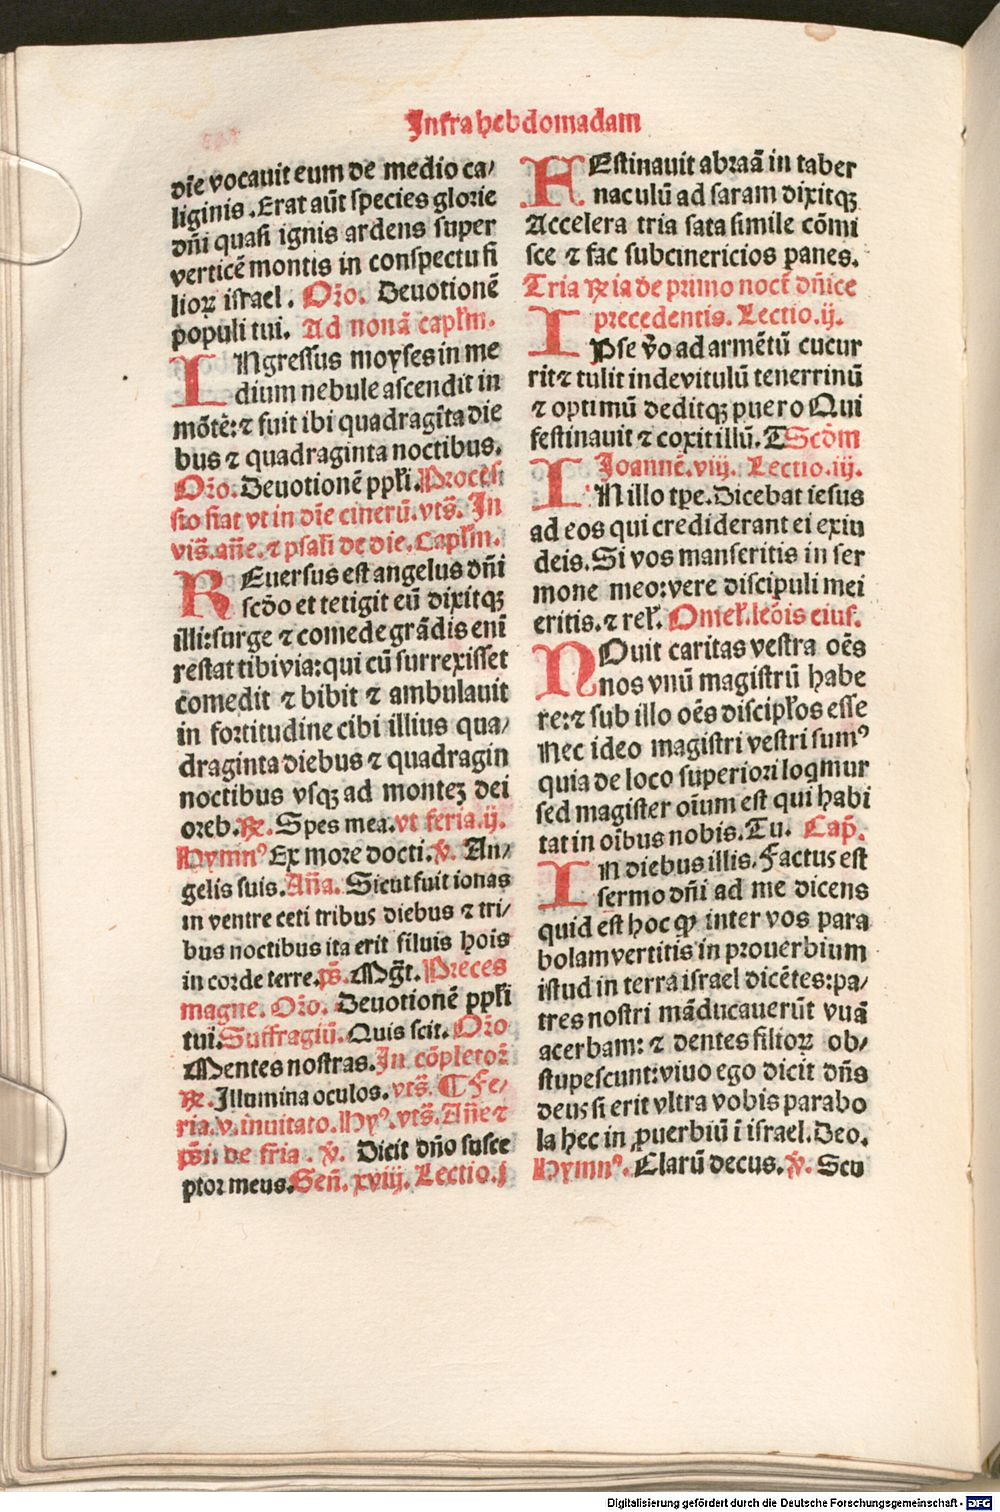 Infra hebdomadam
dīe vocauit eum de medio ca/
liginis. Erat aūt species glorie
dn̄i quasi ignis ardens super
verticē montis in conspectu fi
lioꝝ israel. Or̄o. Deuotionē
populi tui. Ad nonā capłm.
INgressus moyses in me
dium nebule ascendit in
mōtē: ⁊ fuit ibi quadragīta die
bus ⁊ quadraginta noctibus.
Or̄o. Deuotionē ppłi. Proces
sio fiat vt in dīe cinerū. vts̄. In
vis̄. añe. ⁊ psałi de die. Capłm.
REuersus est angelus dn̄i
scd̄o et tetigit eū dixitqꝫ
illi: surge ⁊ comede grādis enī
restat tibi via: qui cū surrexisset
comedit ⁊ bibit ⁊ ambulauit
in fortitudine cibi illius qua/
draginta diebus ⁊ quadragin
noctibus vsqꝫ ad monteꝫ dei
oreb. ℞. Spes mea. vt feria .ij.
Hymnꝰ Ex more docti. v̄. An/
gelis suis. Añа. Sicut fuit ionas
in ventre ceti tribus diebus ⁊ tri/
bus noctibus ita erit filuis hois
in corde terre. ps̄. Mgt̄. Preces
magne. Or̄o. Deuotionē ppłi
tui. Suffragiū. Quis scit. Or̄o
Mentes nostras. In cōpletoꝝ
℞. Illumina oculos. vts̄. ¶ Fe/
ria .v. inuitato. Hyꝰ. vts̄. Añe ⁊
ps̄i: de fr̄ia. v̄. Dicit dn̄o susce
ptor meus. Señ. xviij. Lectio .j
FEstinauit abraā in taber
naculū ad saram dixitqꝫ
Accelera tria sata simile cōmi
sce ⁊ fac subcinericios panes.
Tria ℞ia de primo noct̄ dn̄ice
precedentis. Lectio .ij.
IPse v̄o ad armētū cucur
rit ⁊ tulit inde vitulū tenerrinū
⁊ optimū deditqꝫ puero Qui
festinauit ⁊ coxit illū. T Scd̄m
Joannē. viij. Lectio .iij.
IN illo tpe. Dicebat iesus
ad eos qui crediderant ei exiu
deis. Si vos manseritis in ser
mone meo: vere discipuli mei
eritis. ⁊ reł. Omeł. leōis eiusſ.
NOuit caritas vestra oēs
nos vnū magistrū habe
re: ⁊ sub illo oēs discipłos esse
Nec ideo magistri vestri sumꝰ
quia de loco superiori loqmur
sed magister oīum est qui habi
tat in oībus nobis. Tu. Cap̄.
IN diebus illis. Factus est
sermo dn̄i ad me dicens
quid est hoc ꝙ inter vos para
bolam vertitis in prouerbium
istud in terra israel dicētes: pa/
tres nostri māducauerūt vuā
acerbam: ⁊ dentes filioꝝ ob/
stupescunt: viuo ego dicit dn̄s
deus si erit vltra vobis parabo
la hec in ꝓuerbiū ī israel. Deo.
Hymnꝰ. Clarū decus. v̄. Scu
Digitalisierung gefördert durch die Deutsche Forschungsgemeinschaft - DFG